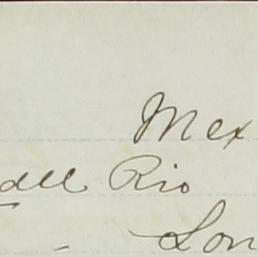 Mex
dell Rio
Lon